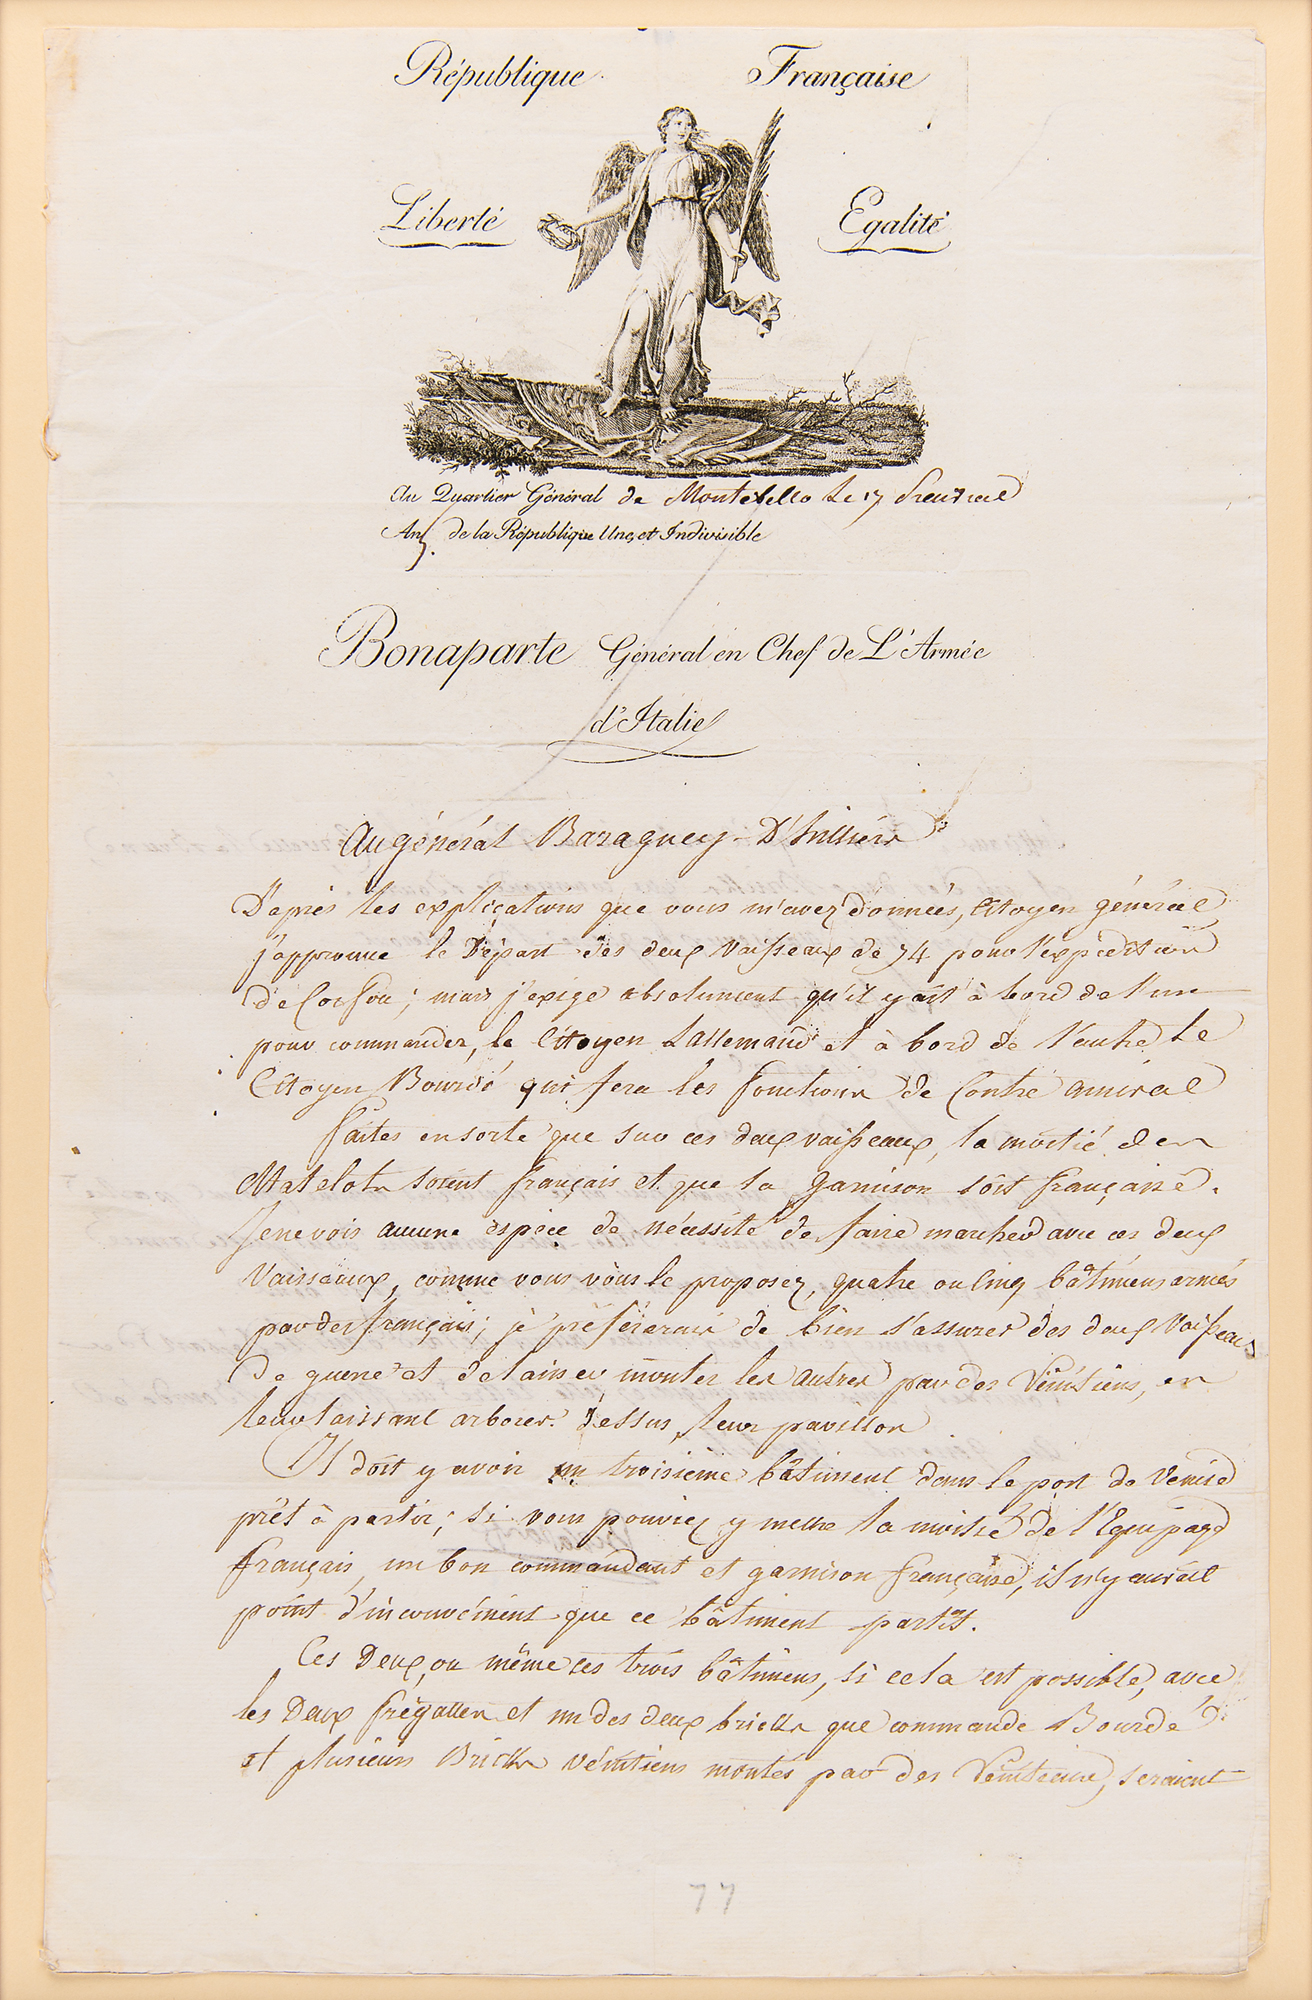 République Française
Liberté Egalité
Au Quartier Général de Montebello le 17 Preureal
An 5. de la République Une, et Indivisible
Bonaparte Général en Chef de L'Armée
d'Italie
Au général Baraguey-D'hilliers
D'après les explications que vous m'avez données, Citoyen général
j'approuve le Départ des deux Vaisseaux de 74 pour l'expédition
de Corfou; mais j'exige absolument qu'il y ait à bord de l'un
pour commander, le Citoyen Lallemand et à bord de l'autre le
Citoyen Bourdé qui fera les fonctions de Contre amiral
faites en sorte que sur ces deux vaisseaux, la moitié des
Matelots soient français et que la garnison soit française.
Je ne vois aucune espèce de nécessité de faire marcher avec ces deux
Vaisseaux, comme vous vous le proposez, quatre ou cinq bâtimens armés
par des français; je préférerais de bien s'assurer des deux Vaisseaux
de guerre et de laisser monter les autres par des Vénitiens, en
leur laissant arborer dessus, leur pavillon
Il doit y avoir un troisième bâtiment dans le port de Venise
prêt à partir; si vous pouviez y mettre la moitié de l'Equipage
français, un bon commandant et garnison française, il n'y aurait
point d'inconvénient que ce bâtiment partît.
Ces Deux, ou même ces trois bâtimens, si cela est possible, avec
les Deux frégattes et un des deux bricks que commande Bourdé
et plusieurs Bricks vénitiens montés par des Vénitiens, seraient
77